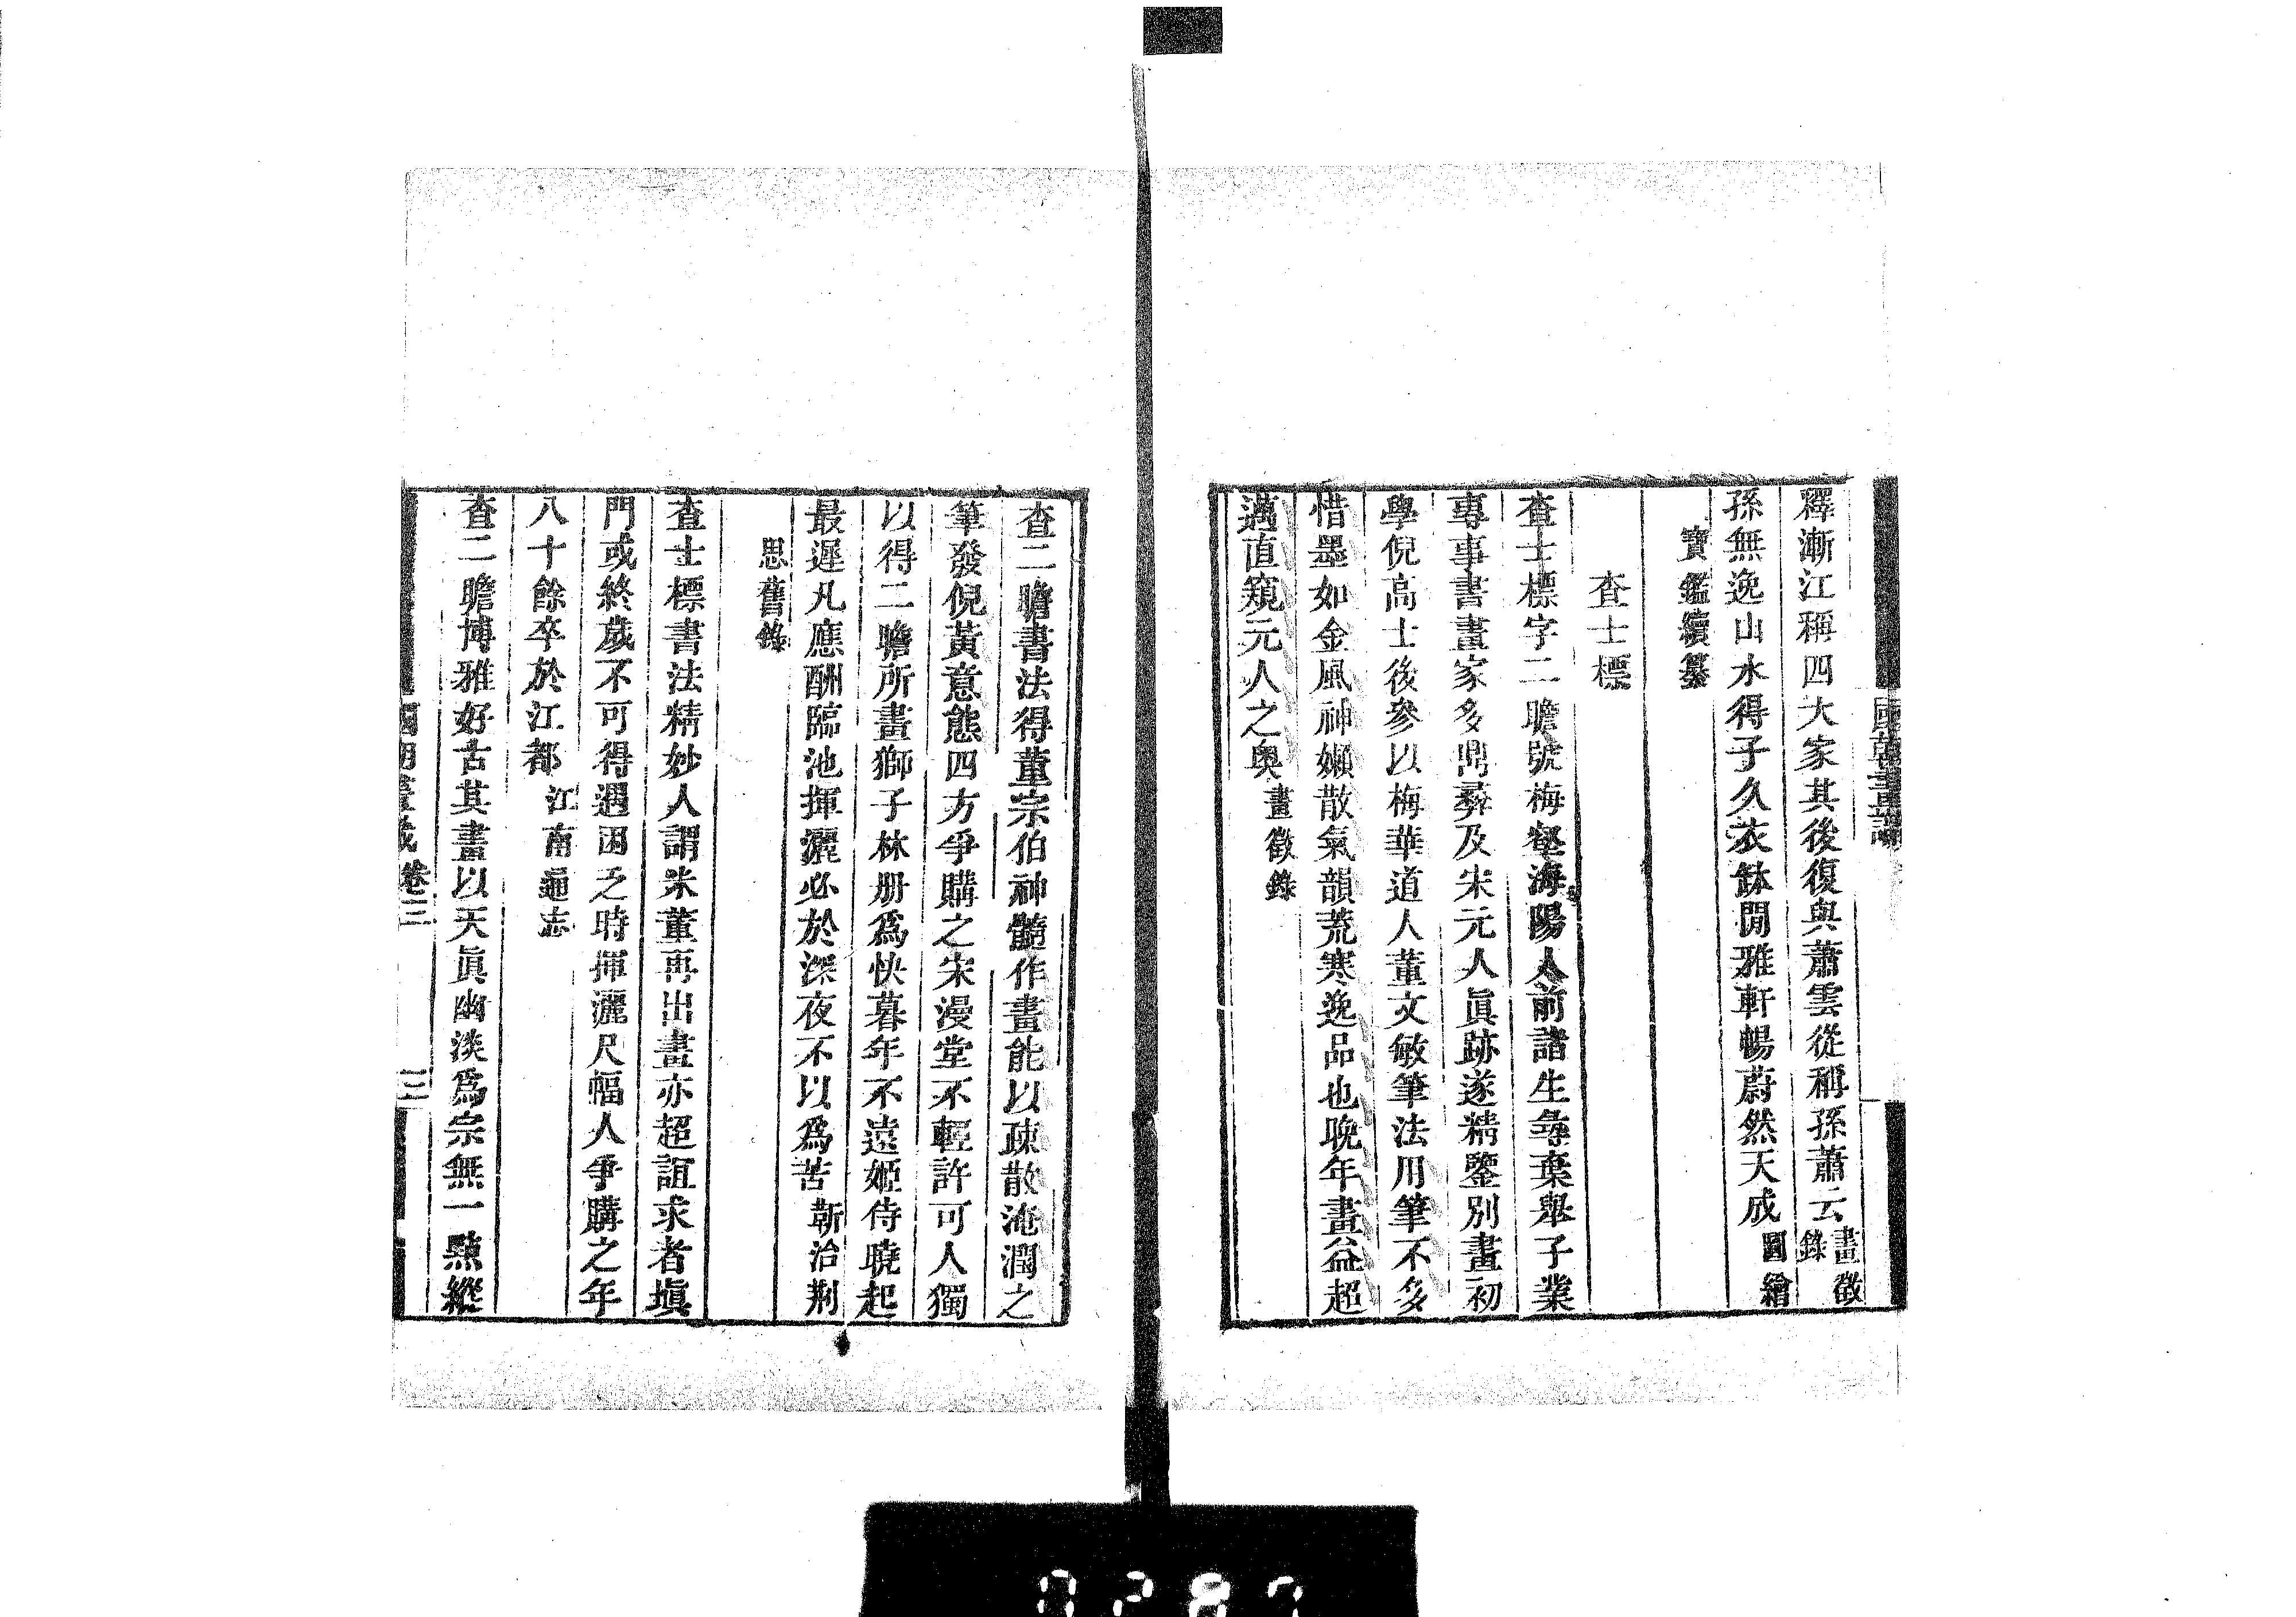 釋漸江稱四大家其後復與蕭雲從稱孫蕭云畫徵錄
孫無逸山水得子久衣缽閒雅軒暢蔚然天成圖繪
寶鑑續纂
查士標
查士標字二瞻號梅壑海陽人前諸生彝棄舉子業
專事書畫家多鼎彝及宋元人眞跡遂精鑒別畫初
學倪高士後參以梅華道人董文敏筆法用筆不多
惜墨如金風神嬾散氣韻荒寒逸品也晚年畫益超
邁直窺元人之奥畫徵錄
查二瞻書法得董宗伯神髓作畫能以疎散淹潤之
筆發倪黃意態四方爭購之宋漫堂不輕許可人獨
以得二瞻所畫獅子林册爲快暮年不遠姬侍曉起
最遲凡應酬臨池揮灑必於深夜不以爲苦靳治荆
思舊錄
查士標書法精妙人謂米董再出畫亦超詣求者塡
門或終歲不可得遇困乏時揮灑尺幅人爭購之年
八十餘卒於江都江南通志
查二瞻博雅好古其畫以天眞幽淡爲宗無一點縱
卷三
三
0287